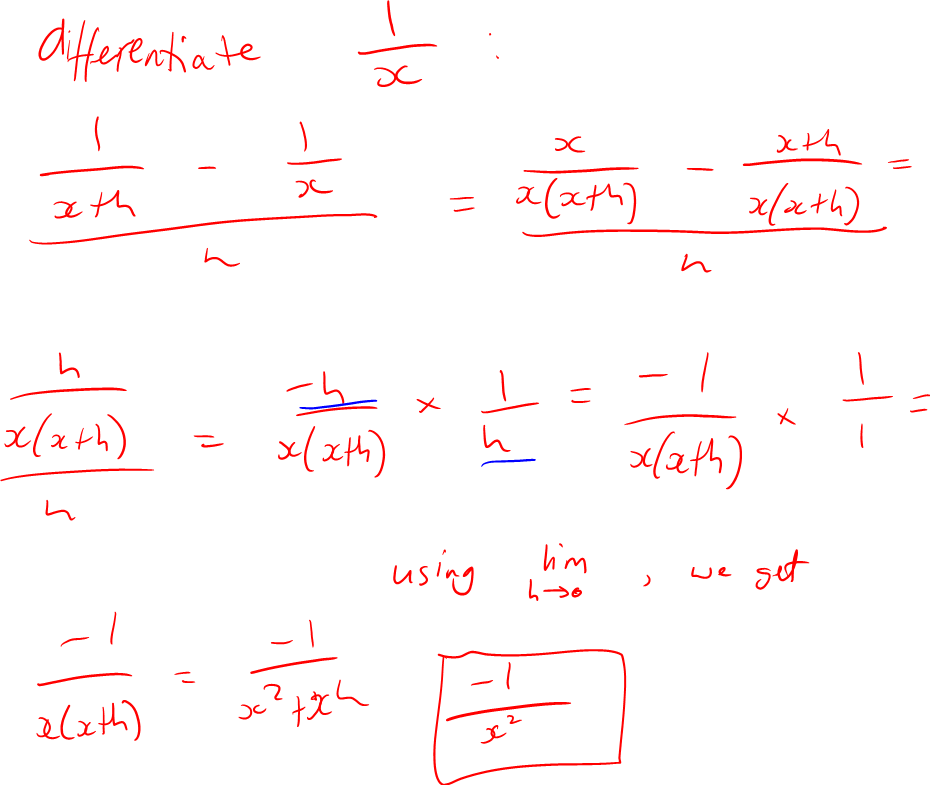 differentiate \frac{1}{x} :
\frac{\frac{1}{x+h} - \frac{1}{x}}{h} = \frac{\frac{x}{x(x+h)} - \frac{x+h}{x(x+h)}}{h} =
\frac{\frac{h}{x(x+h)}}{h} = \frac{-h}{x(x+h)} × \frac{1}{h} = \frac{-1}{x(x+h)} × \frac{1}{1} =
using \lim_{h→0} , we get
\frac{-1}{x(x+h)} = \frac{-1}{x^2+xh} \frac{-1}{x^2}